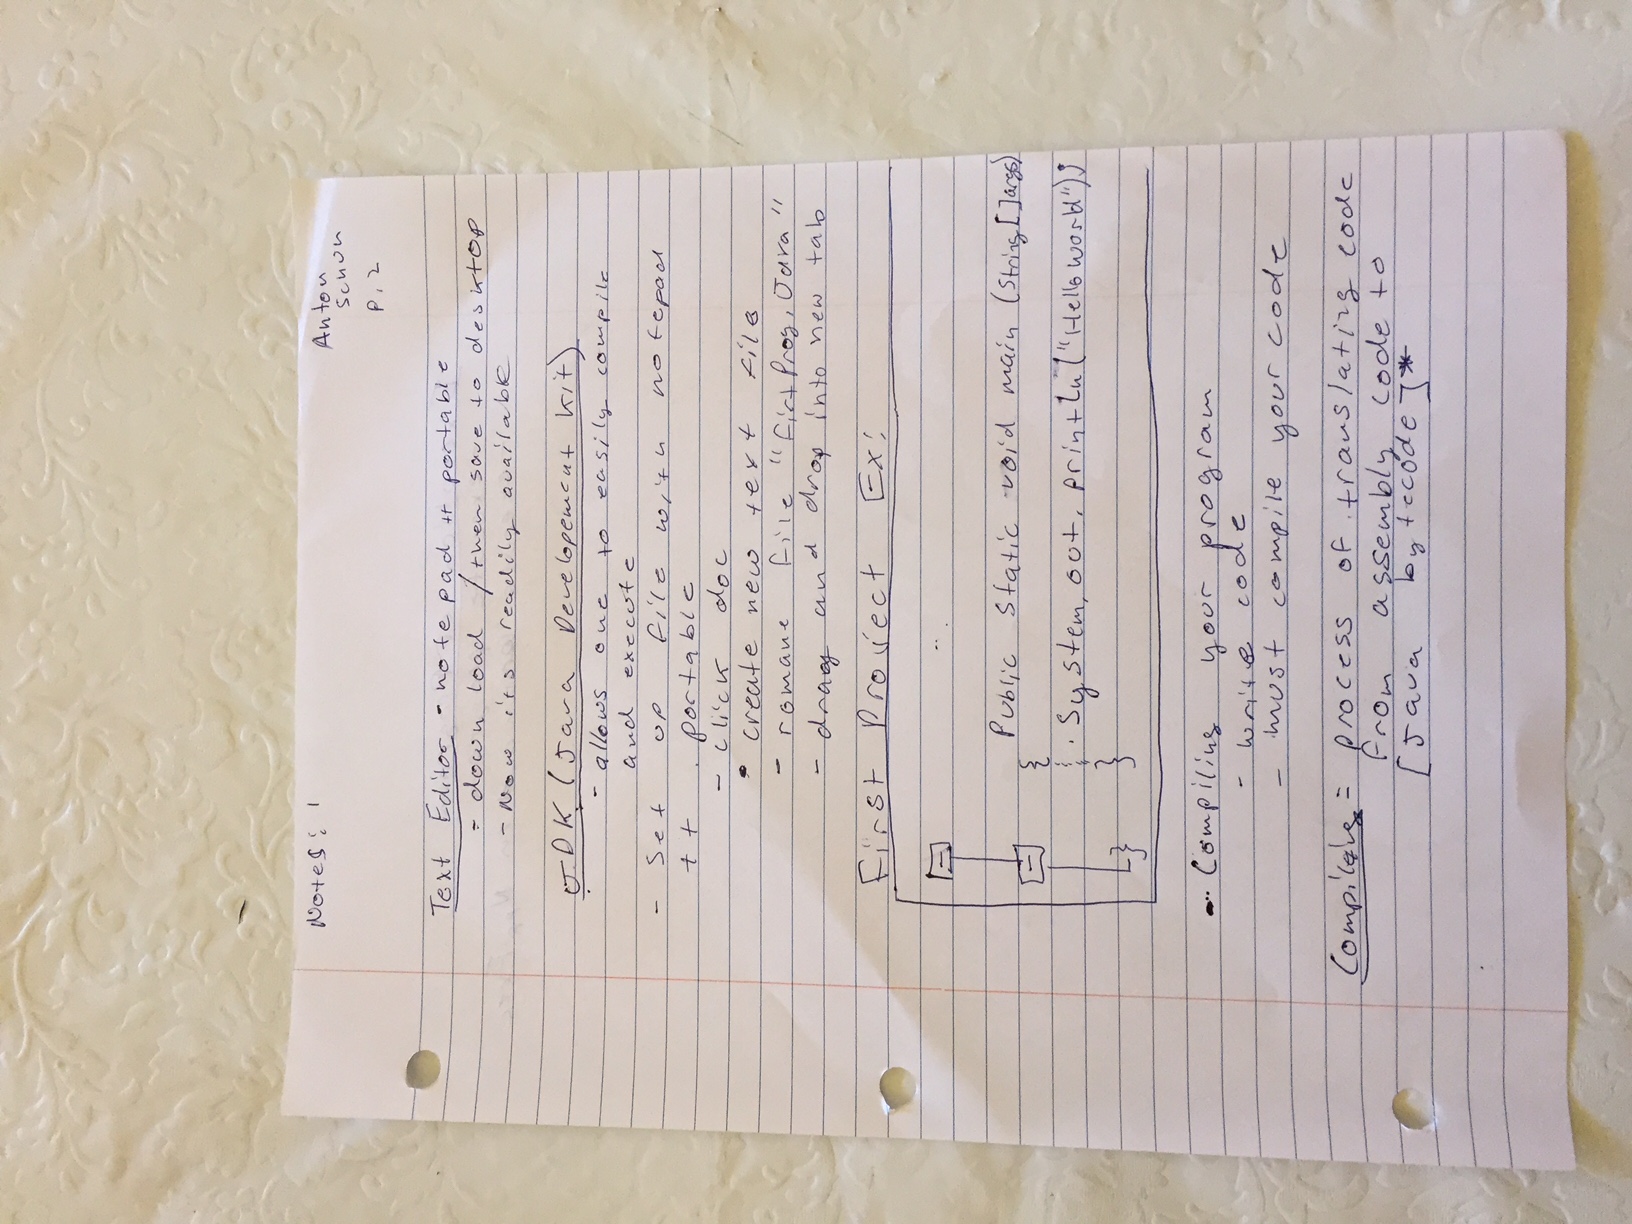 Notes: 1
Anton
Schon
P. 2
Text Editor - notepad ++ portable
- down load / then save to desktop
- Now its readily available
JDK (Java Developement Kit)
- allows one to easily compile
and execute
- Set up file with notepad
++ . portable
- click doc
• create new text file
- romane file "firtProg. Java"
- drag and drop into new tab
First Project Ex:
Public Static void main (String[]args)
{
. System. out. println("Hello World");
}
}
- Compiling your program
- write code
- must compile your code
Compiling = process of translating code
from assembly code to
[Java bytecode]*